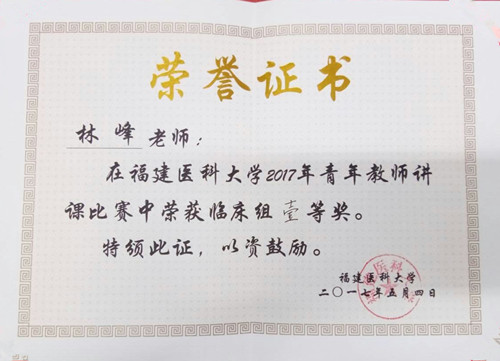 荣誉证书
林峰老师：
在福建医科大学2017年青年教师讲
课比赛中荣获临床组壹等奖。
特颁此证，以资鼓励。
福建医科大学
二〇一七年五月四日